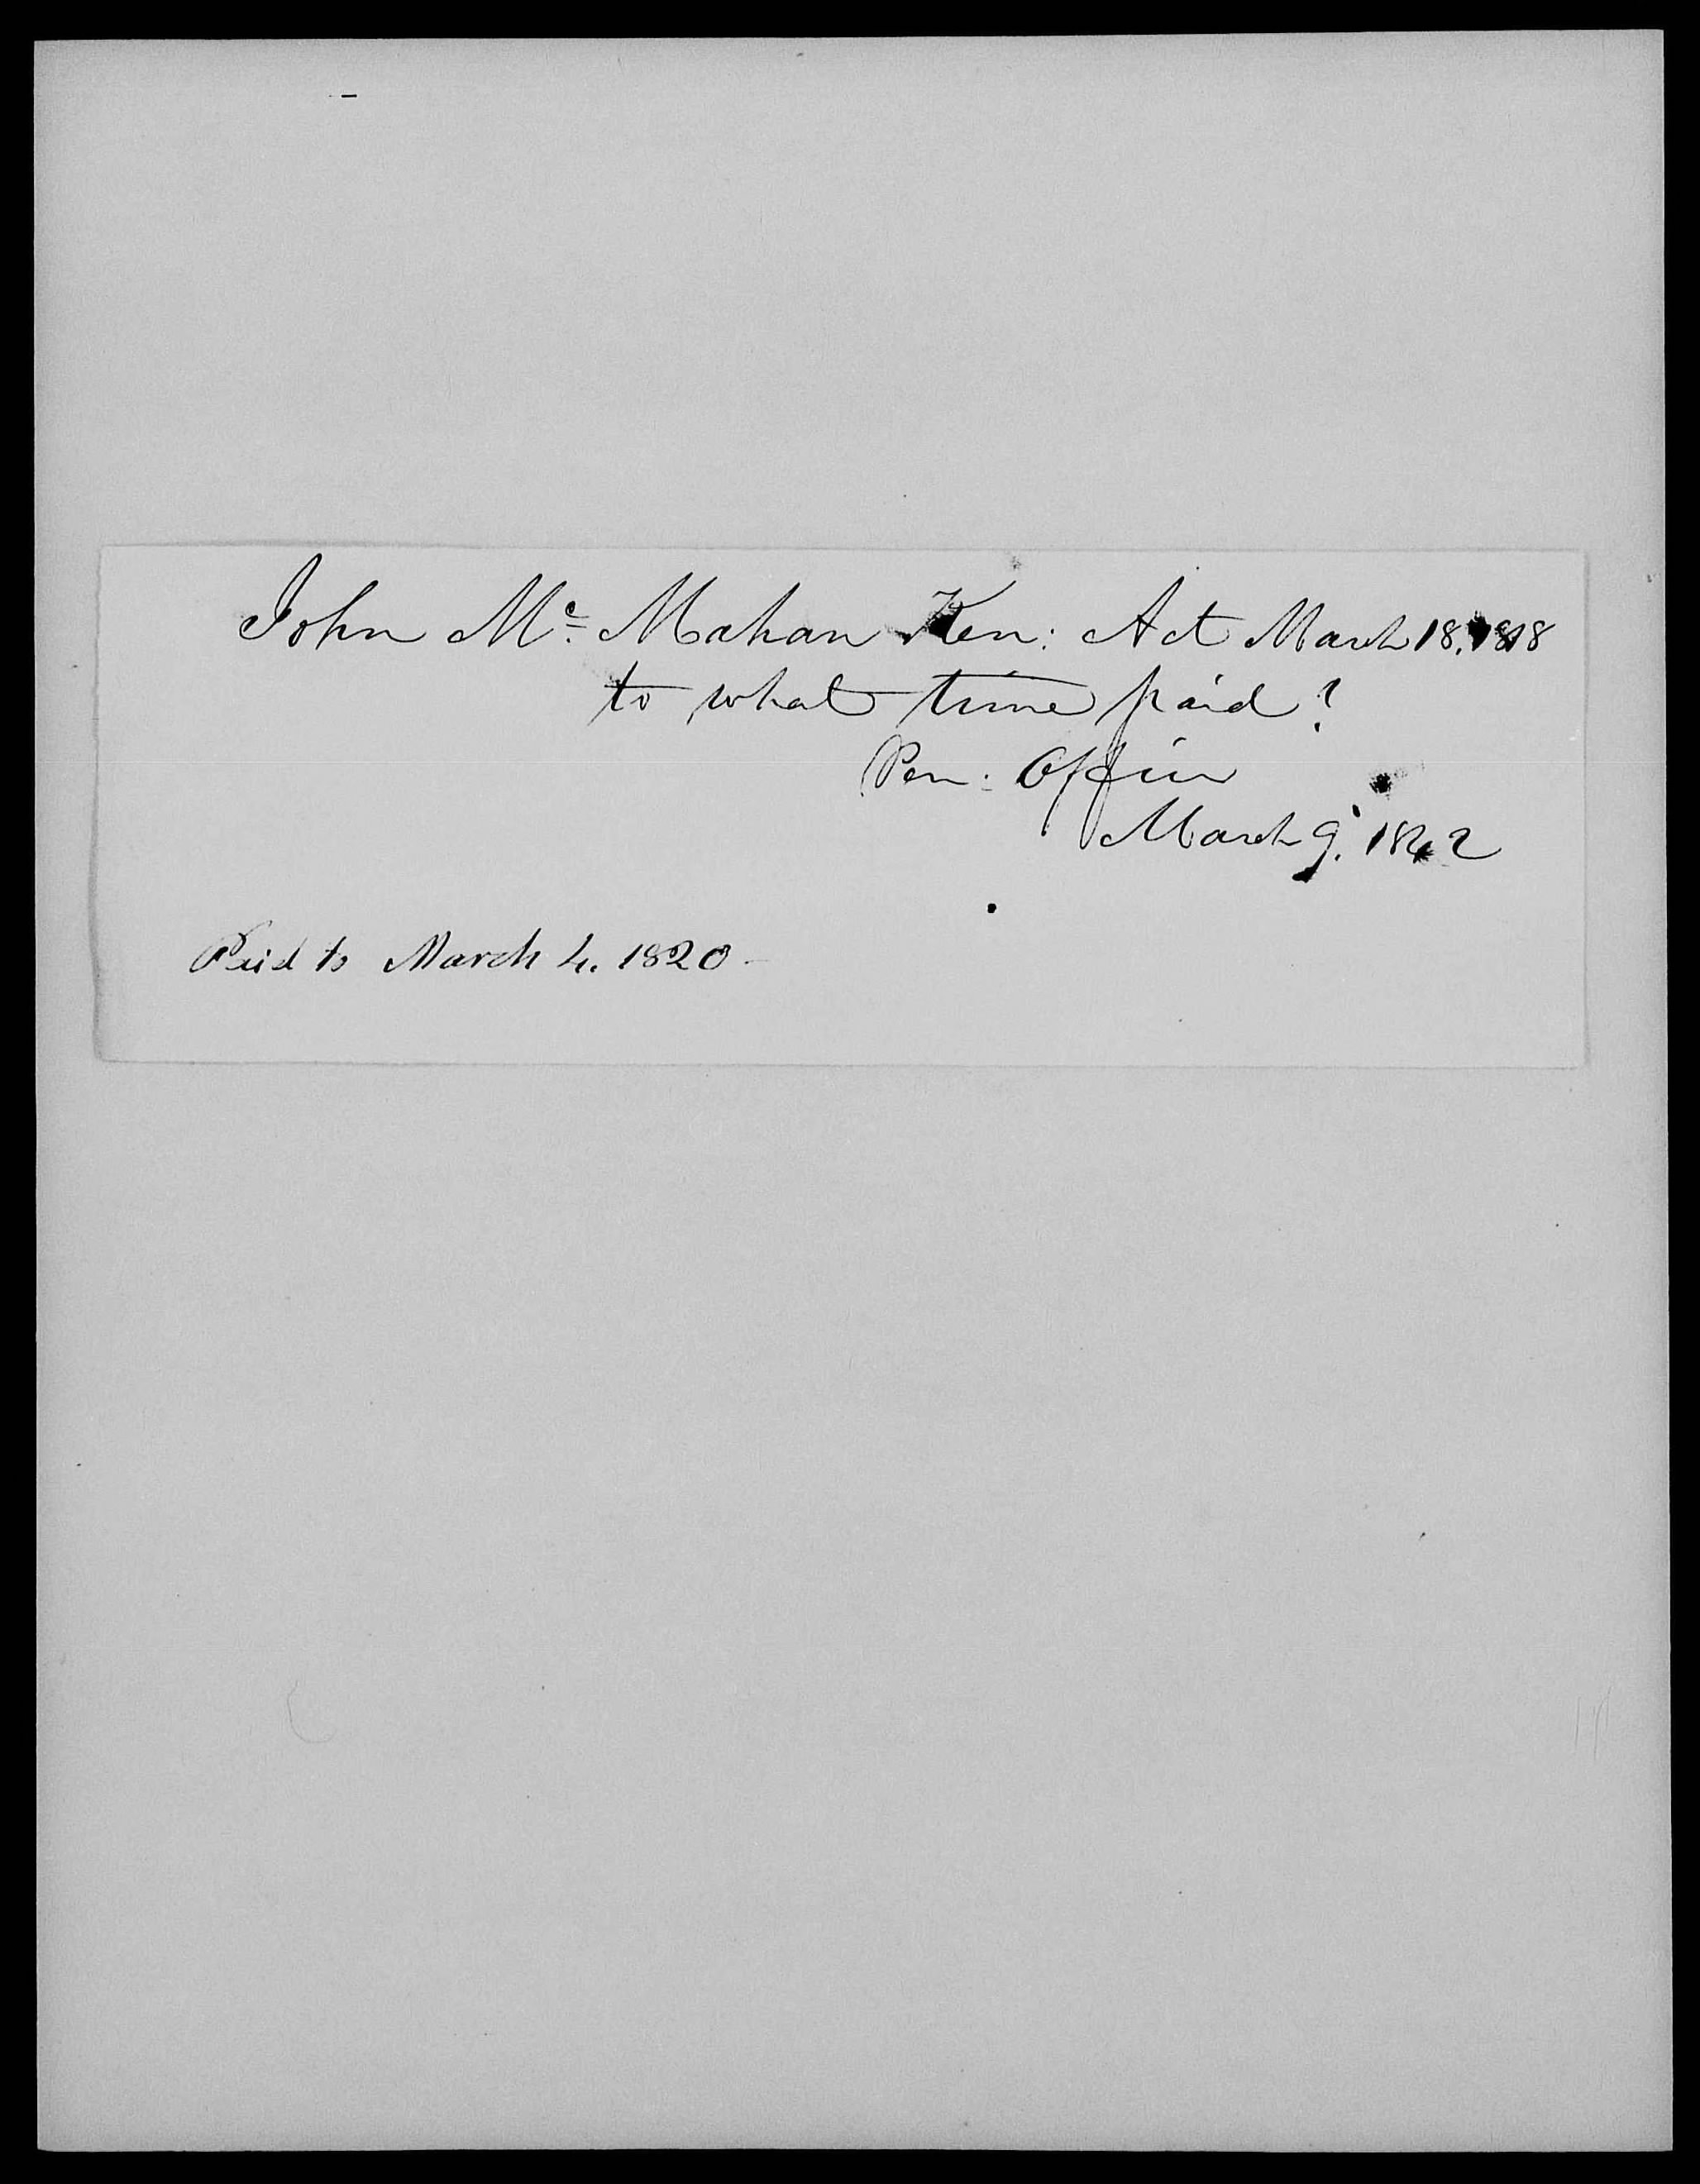 John Mc. Mahan Ken: Act March 18. 1818
to what time paid?
Pen: Office
March 9. 1842
Paid to March 4. 1820